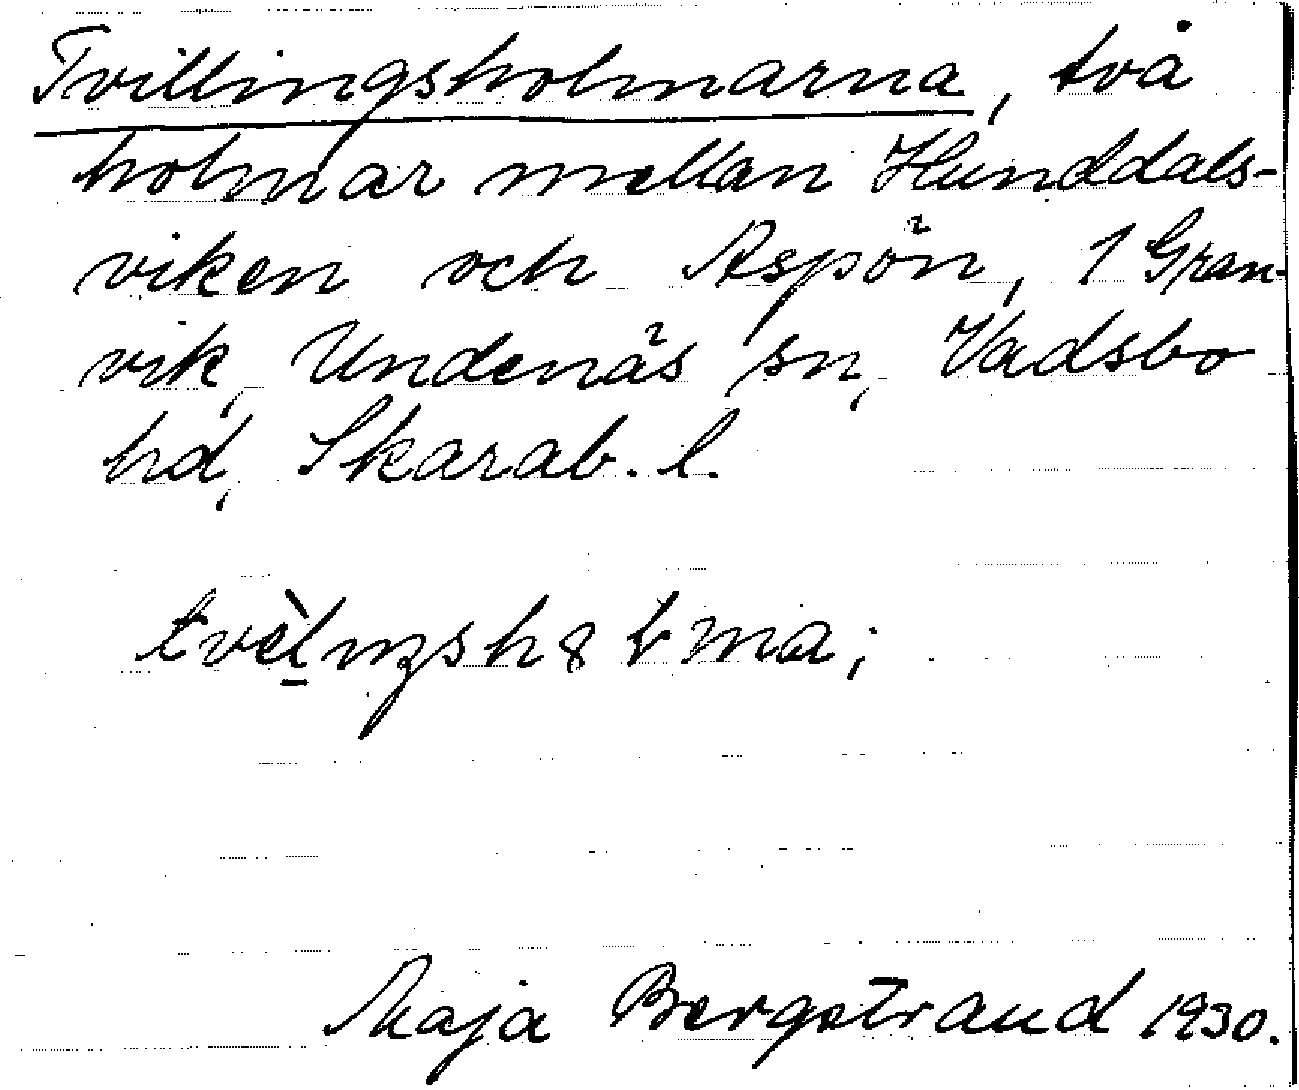 Tvillingsholmarna, två
holmar mellan Hunddals-
viken och Aspön, 1 Gran-
vik, Undenäs sn, Vadsbo
hd, Skarab. l.
Maja Bergstrand 1930.